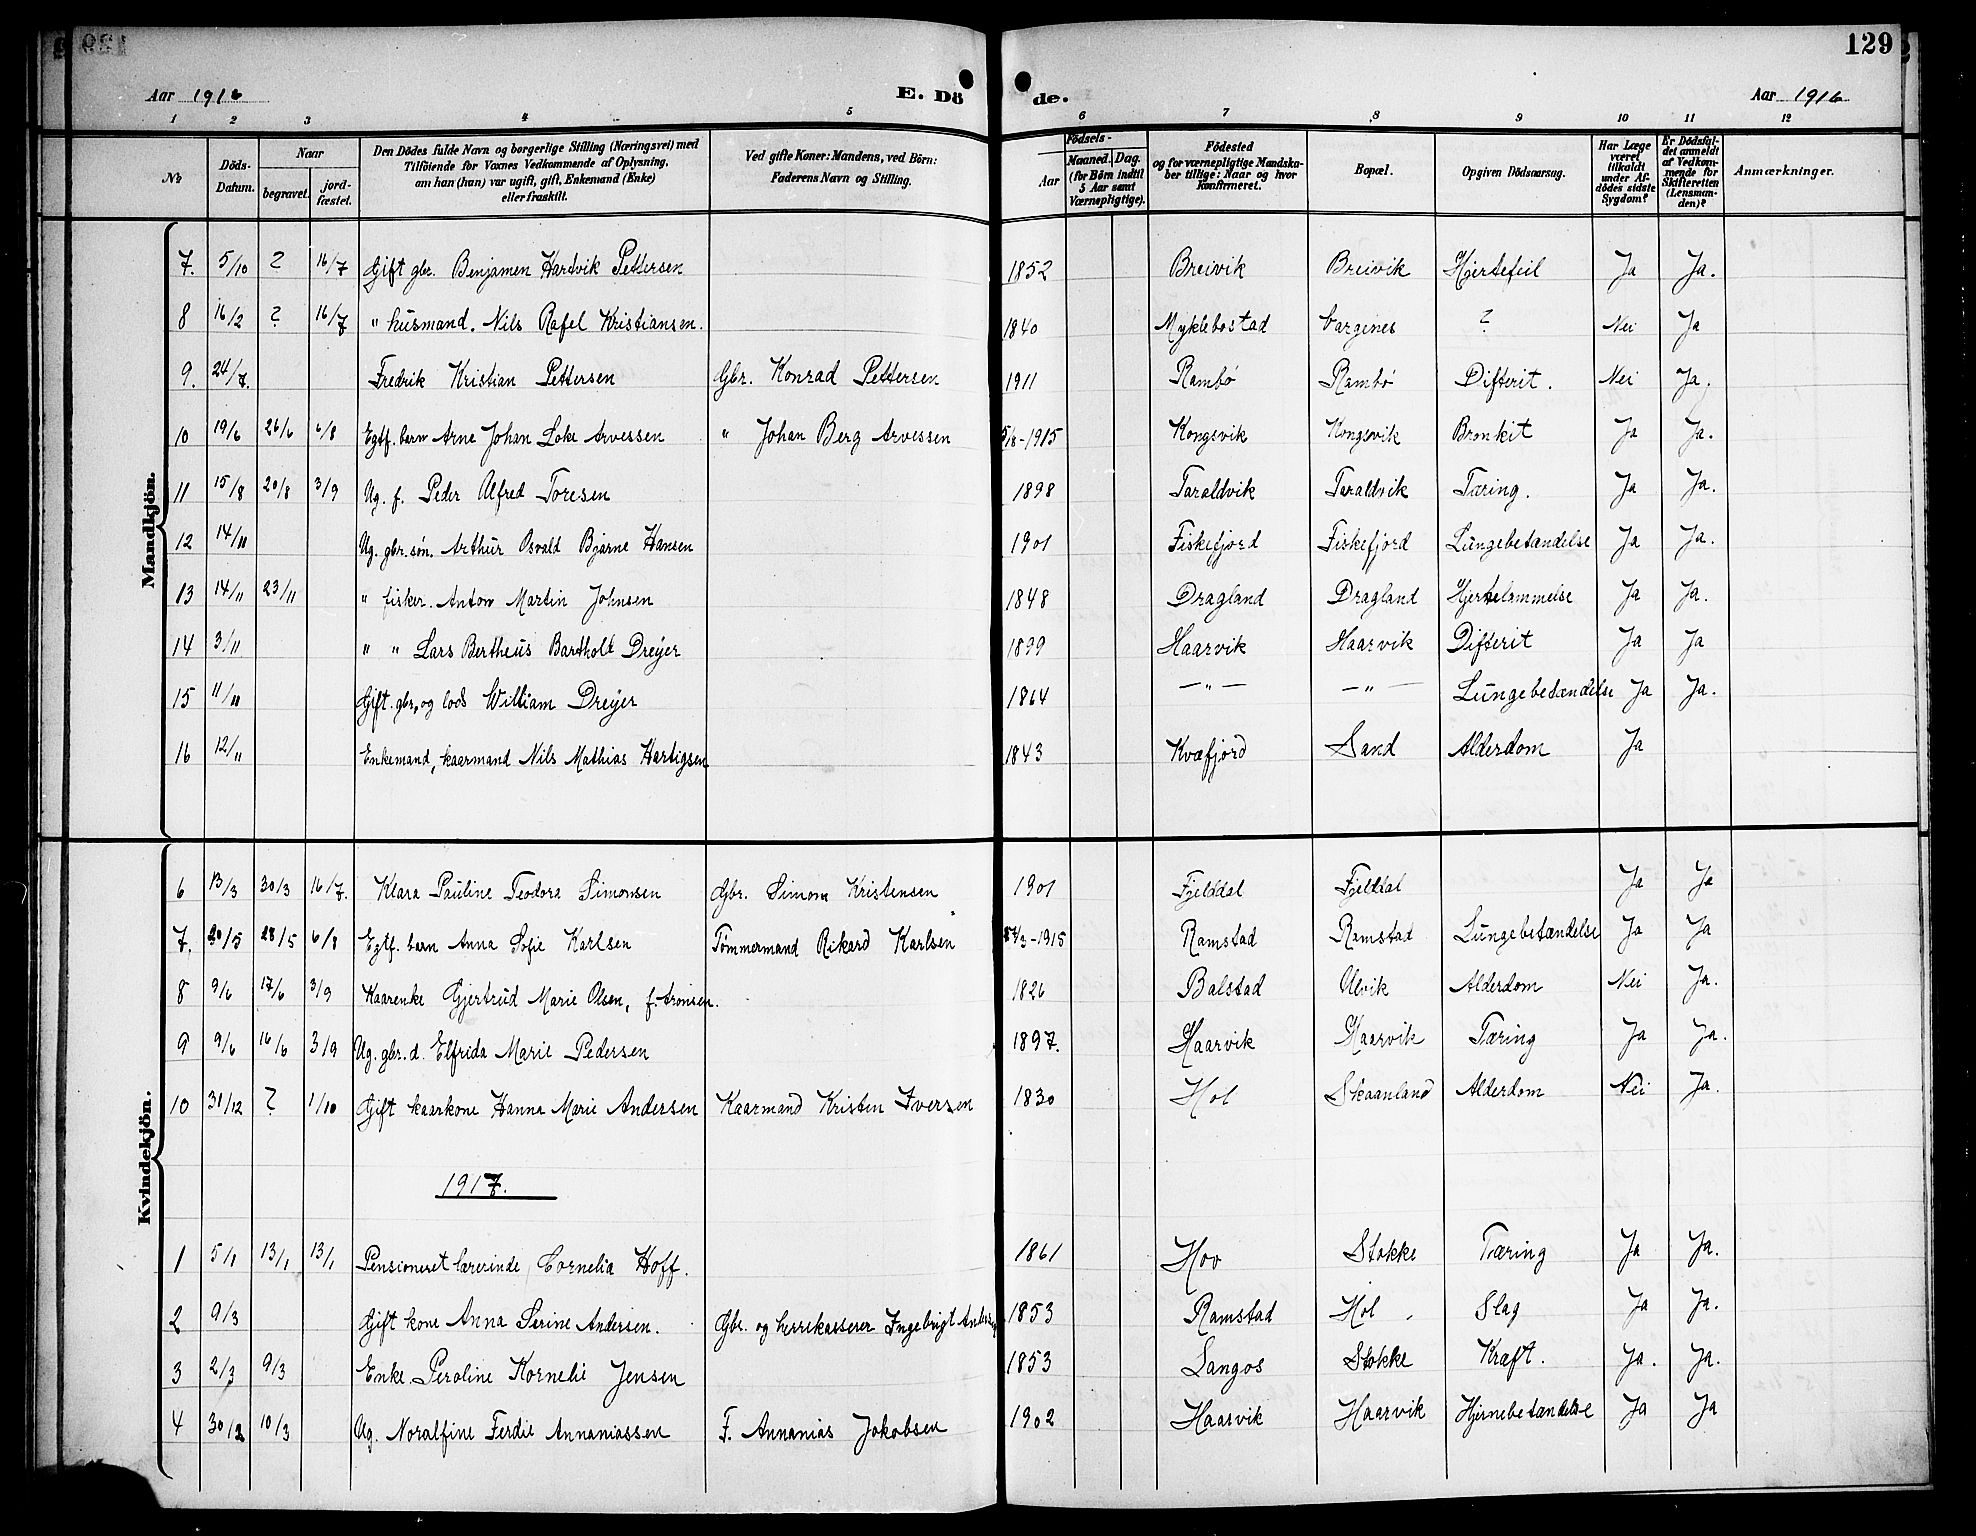 129
Aar 1916 E. Dö de. Aar 1916
1 2 3 4 5 6 7 8 9 10 11 12
№ Döds-Datum. Naar begravet. jord-fæstet. Den Dödes fulde Navn og borgerlige Stilling (Næringsvei) med Tilföiende for Voxnes Vedkommende af Oplysning, om han (hun) var ugift, gift, Enkemand (Enke) eller fraskilt. Ved gifte Koner: Mandens, ved Börn: Faderens Navn og Stilling. Födsels- Aar Maaned. Dag. (for Börn indtil 5 Aar samt Værnepligtige). Födested og for værnepligtige Mandska-ber tillige: Naar og hvor konfirmeret. Bopæl. Opgiven Dödsaarsag. Har Læge været tilkaldt under Af-dödes sidste Sygdom? Er Dödsfal-det anmeldt af Vedkom-mende for Skifteretten (Lensman-den)? Anmærkninger.
Mandkjön.
7. 5/10 ? 16/7 Gift gbr. Benjamen Hartvik Pettersen 1852 Breivik Breivik Hjertefeil Ja Ja.
8 16/2 ? 16/7 " husmand. Nils Rafel Kristiansen. 1840 Myklebostad ? Nei Ja
9. 24/7. Fredrik Kristian Pettersen Gbr. Konrad Pettersen 1911 Rambø Rambø Difterit. Nei Ja.
10 19/6 26/6 6/8 Egtf. barn Arne Johan Loke Arvessen " Johan Berg Arvessen 5/8-1915 Kongsvik Kongsvik Bronkit Ja Ja.
11 15/8 20/8 3/9 Ug. f. Peder Alfred Toresen 1898 Taraldvik Taraldvik Tæring. Ja Ja.
12 14/11 Ug. gbr. søn. Arthur Osvald Bjarne Hansen 1901 Fiskefjord Fiskefjord Lungebetændelse Ja Ja.
13 14/11 23/11 " fisker. Anton Martin Johnsen 1848 Dragland Dragland Hjertelammelse Ja Ja.
14 3/11 " " Lars Bertheus Bartholt Dreyer 1899 Haarvik Haarvik Difterit Ja Ja
15 11/11 Gift. gbr. og lods William Dreyer 1864 — " — — " — Lungebetændelse Ja Ja.
16 12/11 Enkemand, kaarmand Nils Mathias Hartigsen 1843 Kvæfjord Sand Alderdom Ja
Kvindekjön.
6 13/3 30/3 16/7. Klara Pauline Teodora Simonsen Gbr. Simon Kristensen 1901 Fjelddal Fjelddal Ja Ja
7. 20/5 28/5 6/8 Egtf. barn Anna Sofie Karlsen Tømmermand Rikard Karlsen 1915 Ramstad Ramstad Lungebetændelse Ja Ja
8 9/6 17/6 3/9 Kaarenke Gjertrud Marie Olsen, f. Aronsen. 1826 Balstad Ulvik Alderdom Nei Ja.
9 9/6 16/6 3/9 Ug. gbr. d. Elfrida Marie Pedersen 1897. Haarvik Haarvik Tæring Ja Ja.
10 31/12 ? 1/10 Gift kaarkone Hanna Marie Andersen Kaarmand Kristen Iversen 1830 Hol Skaanland Alderdom Nei Ja.
1917.
1 5/1 13/1 13/1 Pensioneret lærerinde, Cornelia Hoff. 1861 Hov Stokke Tæring Ja Ja.
2 9/3 Gift kone Anna Serine Andersen. Gbr. og herrekasserer Ingebrigt Andersen 1853 Ramstad Hol Slag Ja Ja.
3 2/3 9/3 Enke Peroline Kornelie Jensen 1853 Sangos Stokke Kræft. Ja. Ja.
4 30/2 10/3 Ug. Noralfine Ferdie Annaniassen F. Annanias Jakobsen 1902 Haarvik Haarvik Hjernebetændelse Ja Ja